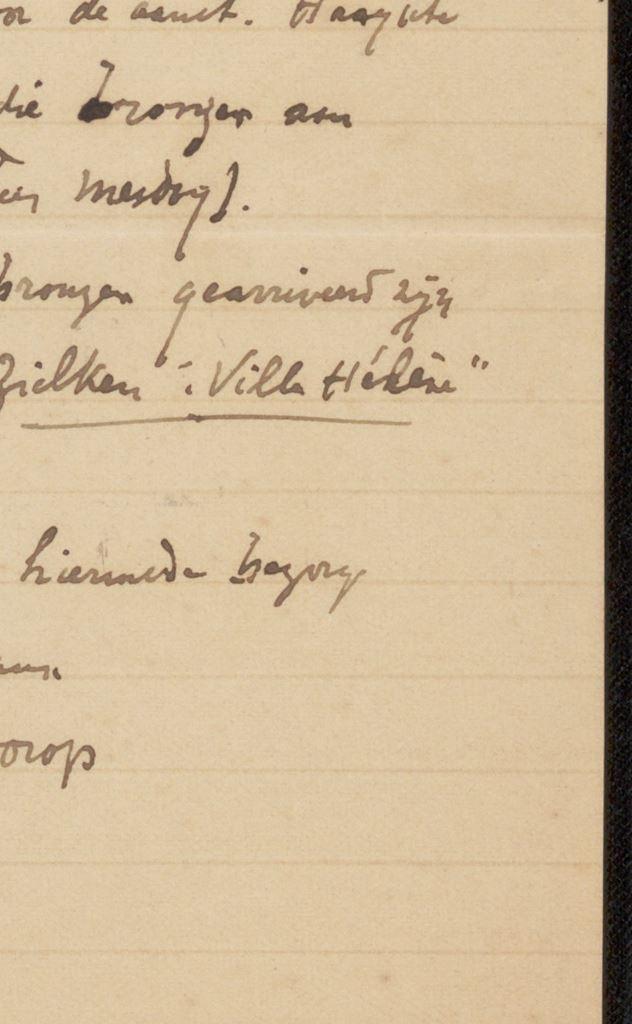 or de aanst. Haagsche
die bronzen aan
Mesdag).
bronzen gearriveerd zijn
Zilken "Villa Hélène"
hiermede bezorg
orop